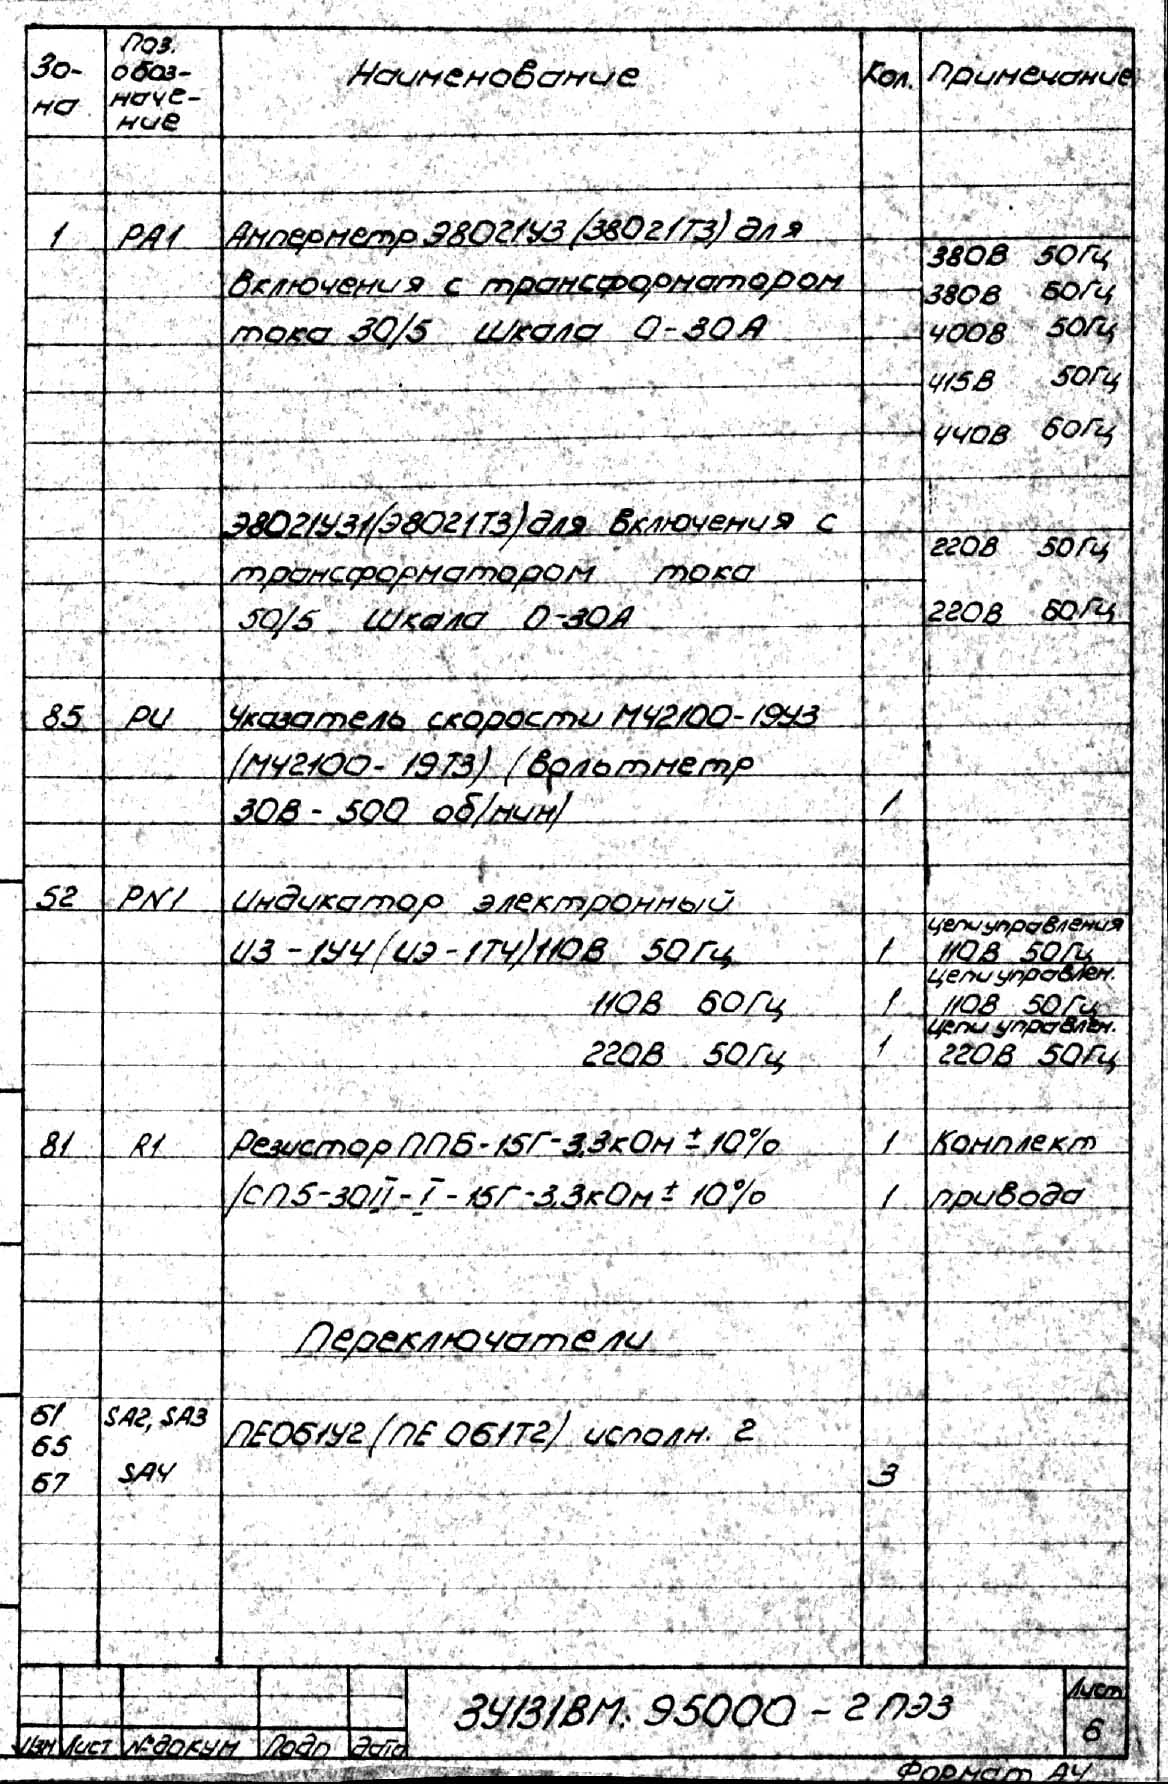 Зо-
на
Поз.
обоз-
наче-
ние
Наименование
Кол.
Примечание
1 РА1 Амперметр Э8021У3 (Э8021Т3) для
включения с трансформатором
тока 30/5 Шкала 0-30А
380В 50Гц
380В 60Гц
400В 50Гц
415В 50Гц
440В 60Гц
Э8021У31(Э8021Т3) для включения с
трансформатором тока
50/5 Шкала 0-30А
220В 50Гц
220В 60Гц
85 PU Указатель скорости М42100-19У3
(М42100-19Т3) (вольтметр
30В-500 об/мин/ 1
52 PN1 Индикатор электронный
ИЭ-1У4 (ИЭ-1Т4) 110В 50Гц 1
цепи управления
110В 50Гц
110В 60Гц 1
цепи управлен.
110В 50Гц
220В 50Гц 1
цепи управлен.
220В 50Гц
81 R1 Резистор ППБ-15Г-3,3кОм ± 10% 1 Комплект
/СП5-30II-I-15Г-3,3кОм ± 10% 1 привода
Переключатели
61 SA2, SA3
65
67 SA4
ПЕ061У2 (ПЕ 061Т2) исполн. 2
3
3У131ВМ. 95000 - 2 ПЭ3
Лист
6
Изм Лист № докум Подп Дата
Формат А4